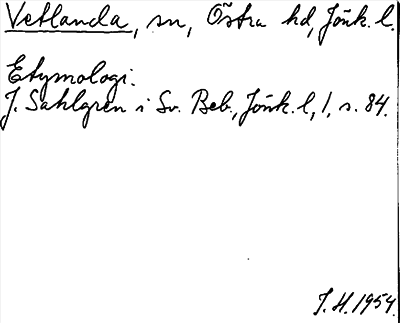 Vetlanda, sn, Östra hd, Jönk. l.
Etymologi.
J. Sahlgren i Sv. Beb., Jönk. l, 1, s. 84.
J. H. 1954.